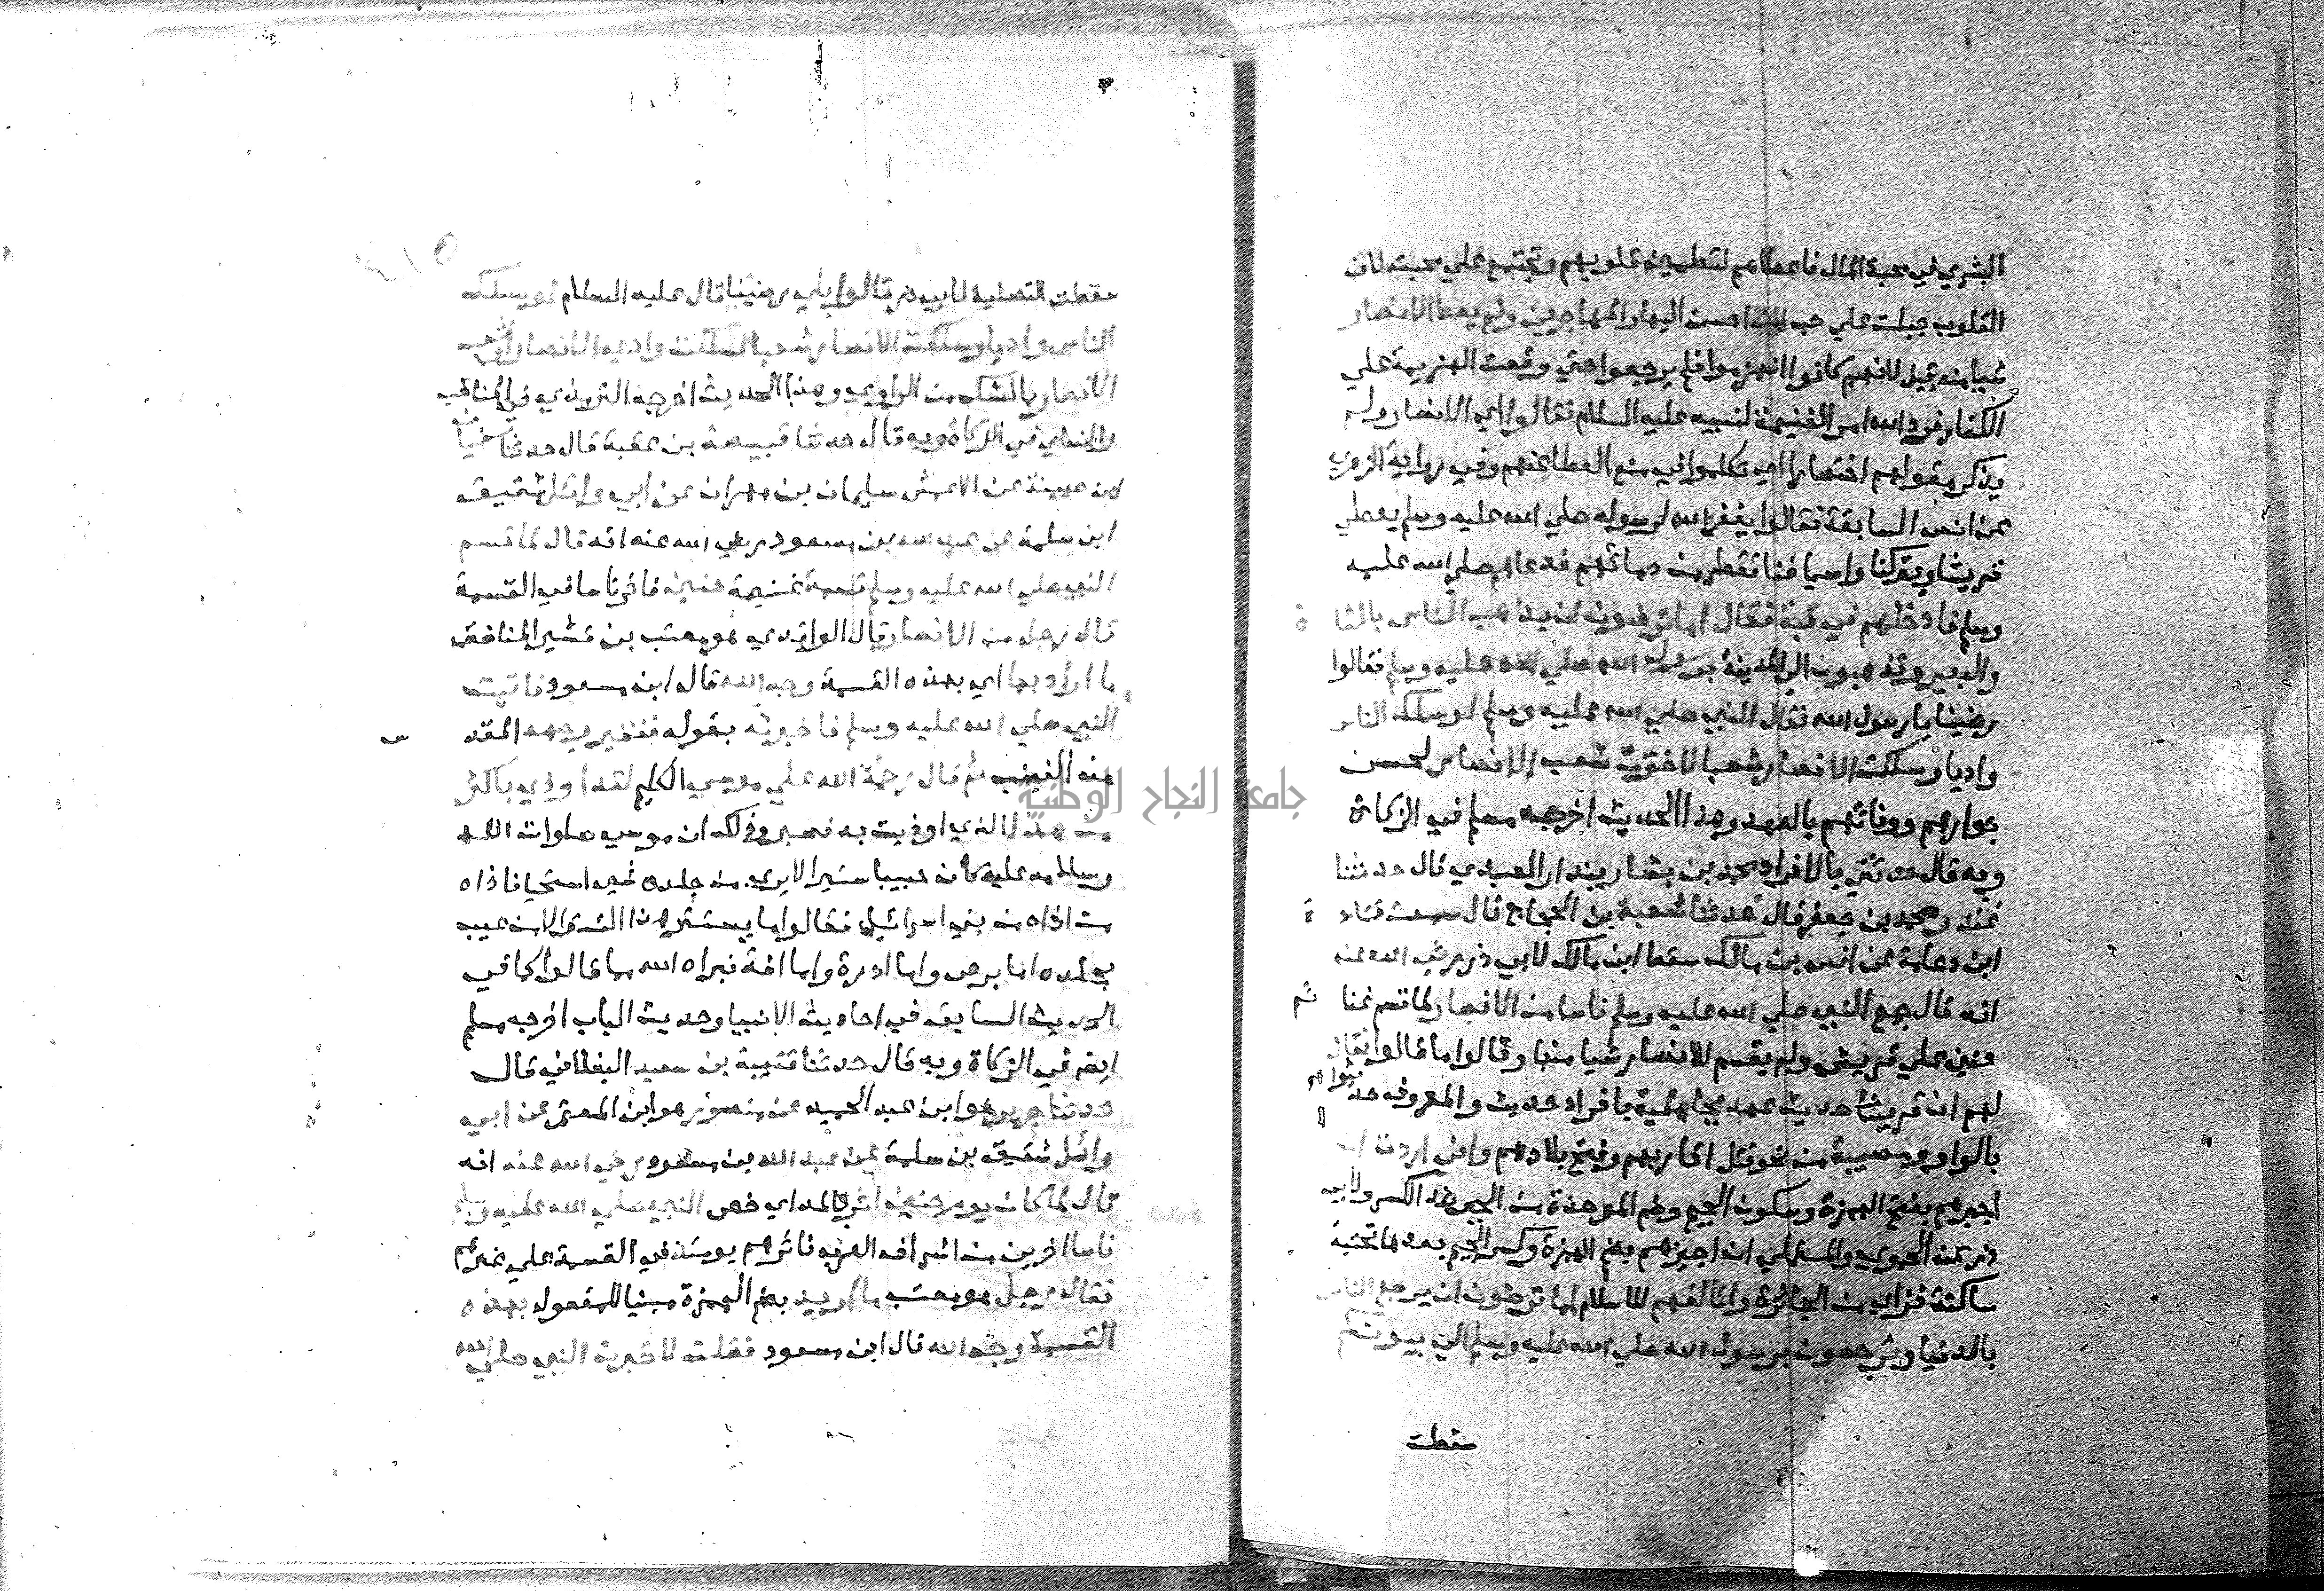 البشري في محبة المال فاعطاهم لتطمين قلوبهم وتجتمع علي محبته لان
القلوب جبلت علي حب من احسن اليها والمهاجرين ولم يعط الانصار
شيا منه قيل لانهم كانوا انهزموا فلم يرجعوا حتي وقعت الهزيمة علي
الكفار فرد الله امر الغنيمة لنبيه عليه السلام فقالوا اي الانصار ولم
يذكر مقولهم اختصارا اي تكلموا في منع العطا عنهم وفي رواية الزهري
عن انس السابقة فقالوا يغفر الله لرسوله صلي الله عليه وسلم يعطي
قريشا ويتركنا واسيافنا تقطر من دمائهم فدعاهم صلي الله عليه
وسلم فادخلهم في قبة فقال اما ترضون ان يذهب الناس بالشاة
والبعير وتذهبون الي المدينة برسول الله صلي الله عليه وسلم فقالوا
رضينا يا رسول الله فقال النبي صلي الله عليه وسلم لو سلك الناس
واديا وسلكت الانصار شعبا لاخترت شعب الانصار لحسن
جوارهم ووفائهم بالعهد وهذا الحديث اخرجه مسلم في الزكاة
وبه قال حدثني بالافراد محمد بن بشار بندار العبدي قال حدثنا
غندر محمد بن جعفر قال حدثنا شعبة بن الحجاج قال سمعت قتادة
ابن دعامة عن انس بن مالك سقط ابن مالك لابي ذر رضي الله عنه
انه قال جمع النبي صلي الله عليه وسلم ناسا من الانصار لما قسم غنائم
حنين علي قريش ولم يقسم للانصار شيا منها وقالوا ما قالوا فقال
لهم ان قريشا حديث عهد بجاهلية بافراد حديث والمعروف حديثوا
بالواو ومصيبة من نحو قتل اقاربهم وفتح بلادهم واني اردت ان
اجبرهم بفتح الهمزة وسكون الجيم وضم الموحدة من الجبر ضد الكسر ولابي
ذر عن الحموي والمستملي ان اجيزهم بضم الهمزة وكسر الجيم بعدها تحتية
ساكنة فزاي من الجائزة واتالفهم للاسلام اما ترضون ان يرجع الناس
بالدنيا وترجعون برسول الله صلي الله عليه وسلم الي بيوتكم
سقطت
سقطت التصلية لابي ذر قالوا بلي رضينا قال عليه السلام لو سلك
الناس واديا وسلكت الانصار شعبا لسلكت وادي الانصار او شعب
الانصار بالشك من الراوي وهذا الحديث اخرجه الترمذي في المناقب
والنسائي في الزكاة وبه قال حدثنا قبيصة بن عقبة قال حدثنا سفيان
ابن عيينة عن الاعمش سليمان بن مهران عن ابي وائل شقيق
ابن سلمة عن عبد الله بن مسعود رضي الله عنه انه قال لما قسم
النبي صلي الله عليه وسلم قسمة غنيمة حنين فاثر ناسا في القسمة
قال رجل من الانصار قال الواقدي هو معتب بن قشير المنافق
ما اراد بها اي بهذه القسمة وجه الله قال ابن مسعود فاتيت
النبي صلي الله عليه وسلم فاخبرته بقوله فتغير وجهه المقدس
من الغضب ثم قال رحمة الله علي موسي الكليم لقد اوذي باكثر
من هذا الذي اوذيت به فصبر وذلك ان موسي صلوات الله
وسلامه عليه كان حييا ستيرا لا يري من جلده شي استحيا فاذاه
من اذاه من بني اسرائيل فقالوا ما يستتر هذا التستر الا من عيب
بجلده اما برص واما ادرة واما افة فبراه الله مما قالوا كما في
الحديث السابق في احاديث الانبيا وحديث الباب اخرجه مسلم
ايضا في الزكاة وبه قال حدثنا قتيبة بن سعيد البغلاني قال
حدثنا جرير هو ابن عبد الحميد عن منصور هو ابن المعتمر عن ابي
وائل شقيق بن سلمة عن عبد الله بن مسعود رضي الله عنه انه
قال لما كان يوم حنين اثر بالمد اي خص النبي صلي الله عليه وسلم
ناسا اخرين من اشراف العرب فاثرهم يومئذ في القسمة علي غيرهم
فقال رجل هو معتب ما اريد بضم الهمزة مبنيا للمفعول بهذه
القسمة وجه الله قال ابن مسعود فقلت لاخبرن النبي صلي الله
جامعة النجاح الوطنية